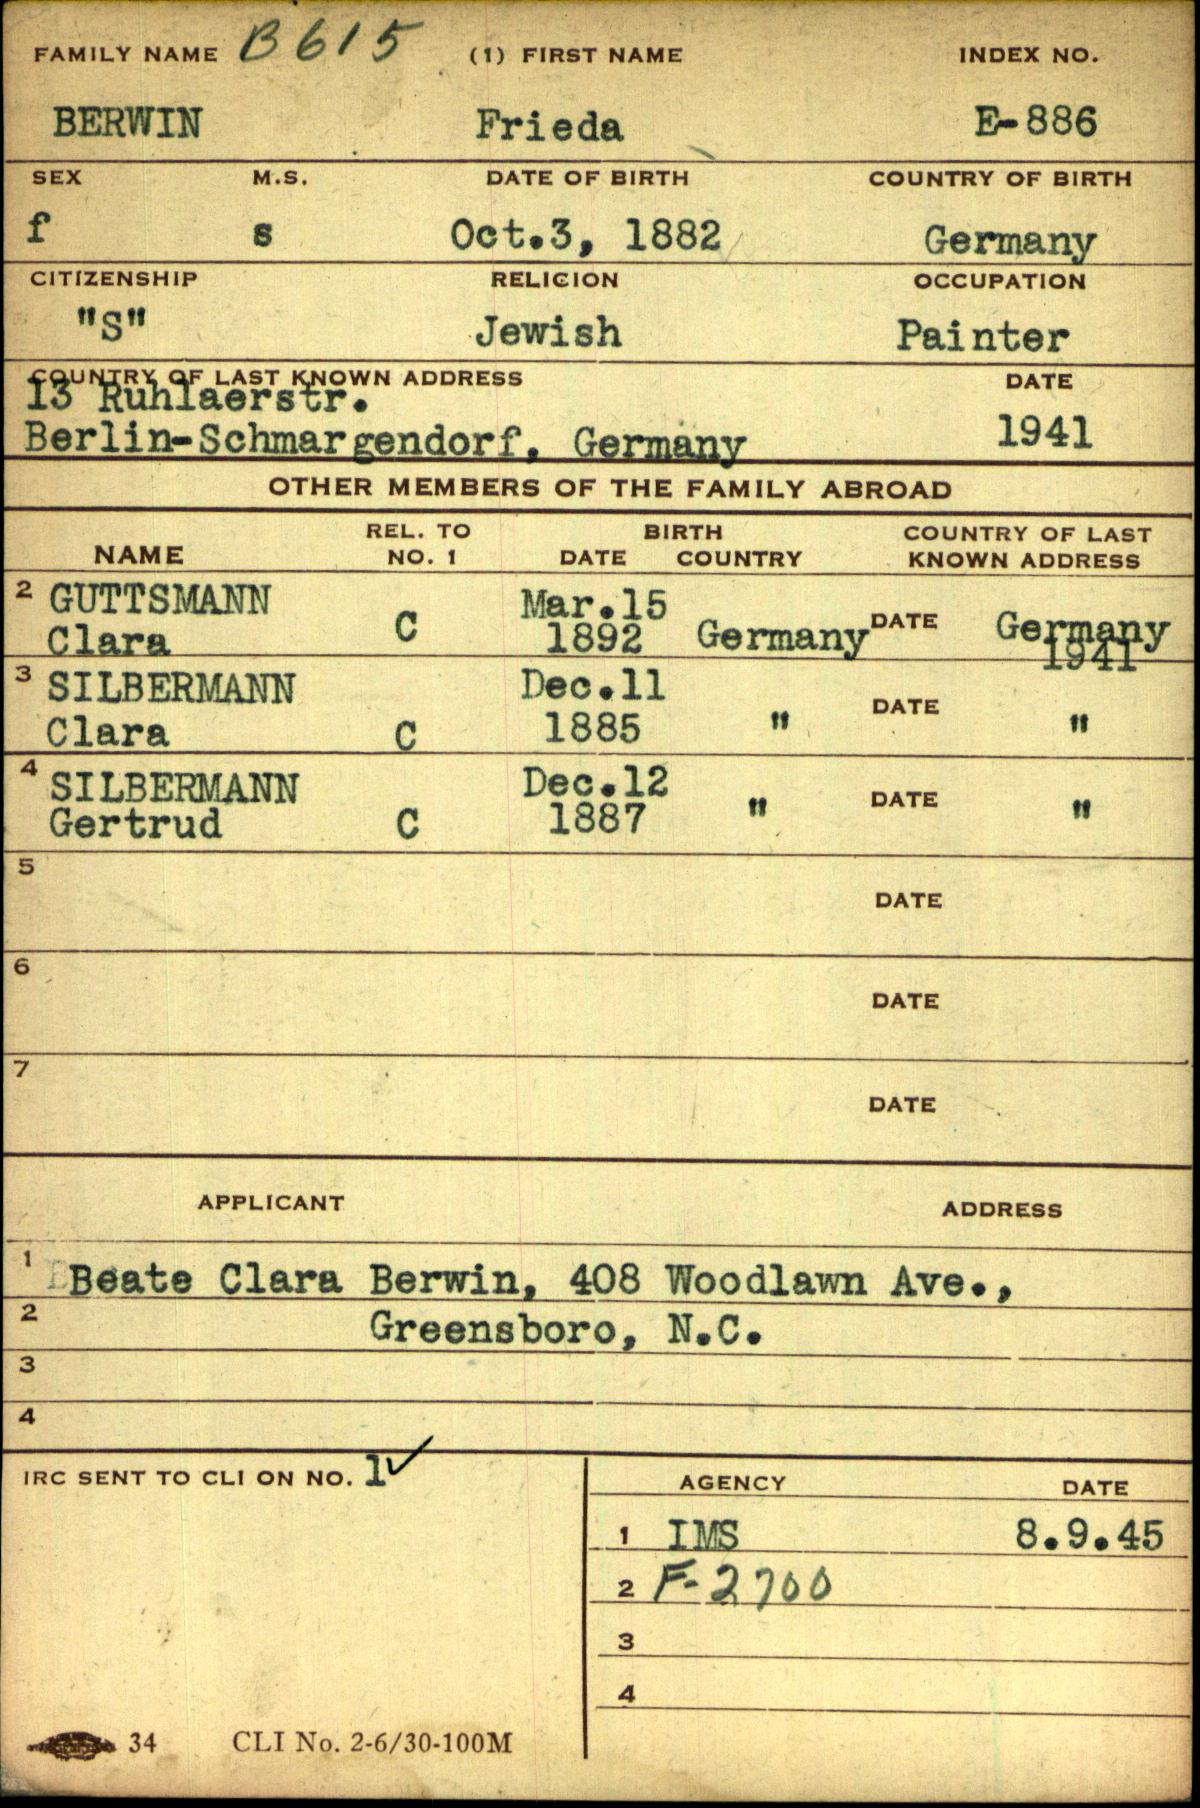 FAMILY NAME B615 (1) FIRST NAME INDEX NO.
BERWIN Frieda E-886
SEX M.S. DATE OF BIRTH COUNTRY OF BIRTH
f s Oct.3, 1882 Germany
CITIZENSHIP RELIGION OCCUPATION
"S" Jewish Painter
COUNTRY OF LAST KNOWN ADDRESS DATE
13 Ruhlaerstr.
Berlin-Schmargendorf, Germany 1941
OTHER MEMBERS OF THE FAMILY ABROAD
REL. TO BIRTH COUNTRY OF LAST
NAME NO. 1 DATE COUNTRY KNOWN ADDRESS
2 GUTTSMANN Mar.15
Clara C 1892 Germany DATE Germany
1941
3 SILBERMANN Dec.11 DATE
Clara C 1885 " "
4 SILBERMANN Dec.12 DATE
Gertrud C 1887 " "
5 DATE
6 DATE
7 DATE
APPLICANT ADDRESS
1 Beate Clara Berwin, 408 Woodlawn Ave.,
2 Greensboro, N.C.
3
4
IRC SENT TO CLI ON NO. 1✓ AGENCY DATE
1 IMS 8.9.45
2 F-2700
3
4
34 CLI No. 2-6/30-100M